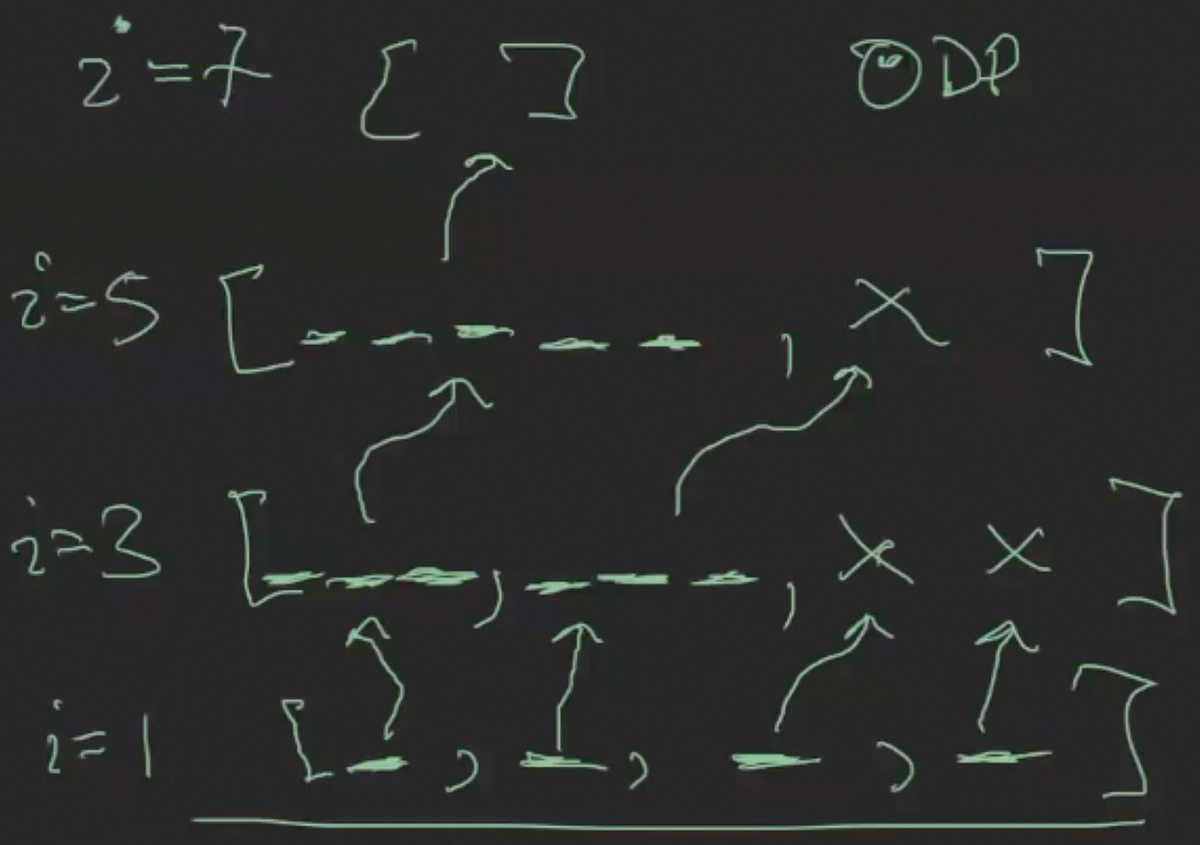 i=7 [ ] ⊙DP
i=5 [_ _ _ _ _ , X ]
i=3 [_ _ _, _ _ _, X X ]
i=1 [_, _, _, _]